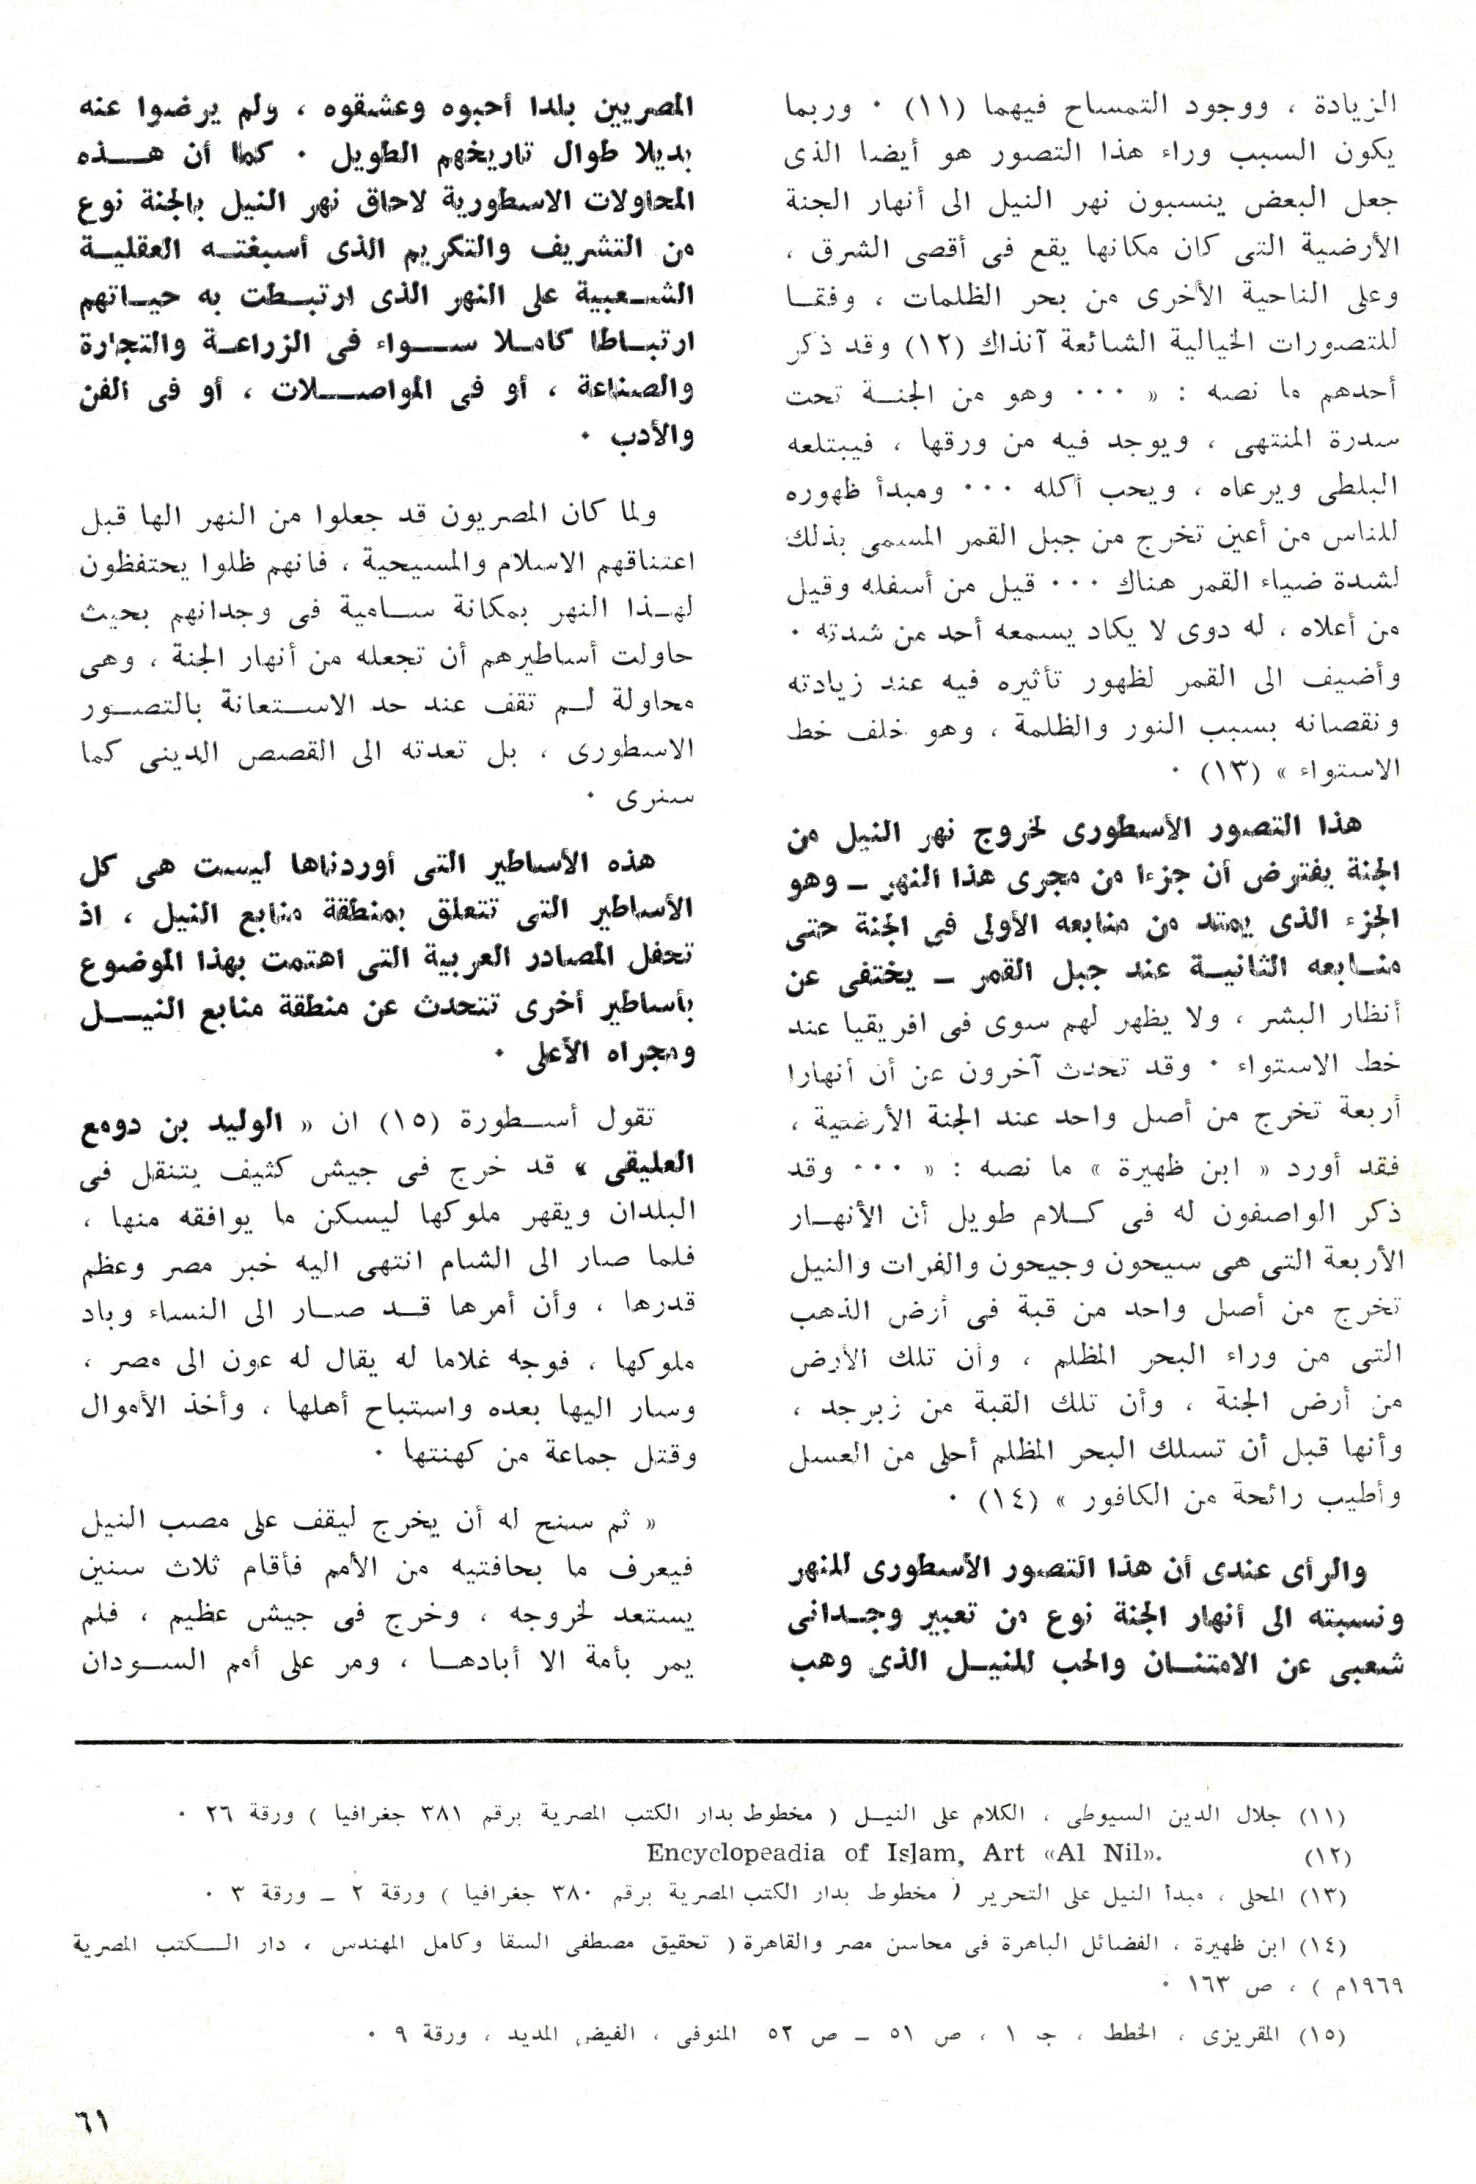 الزيادة ، ووجود التمساح فيهما (١١) ٠ وربما
يكون السبب وراء هذا التصور هو أيضا الذى
جعل البعض ينسبون نهر النيل الى أنهار الجنة
الأرضية التى كان مكانها يقع فى أقصى الشرق ،
وعلى الناحية الأخرى من بحر الظلمات ، وفقا
للتصورات الخيالية الشائعة آنذاك (١٢) وقد ذكر
أحدهم ما نصه : « ٠٠٠ وهو من الجنة تحت
سدرة المنتهى ، ويوجد فيه من ورقها ، فيبتلعه
البلطى ويرعاه ، ويحب أكله ٠٠٠ ومبدأ ظهوره
للناس من أعين تخرج من جبل القمر المسمى بذلك
لشدة ضياء القمر هناك ٠٠٠ قيل من أسفله وقيل
من أعلاه ، له دوى لا يكاد يسمعه أحد من شدته ٠
وأضيف الى القمر لظهور تأثيره فيه عند زيادته
ونقصانه بسبب النور والظلمة ، وهو خلف خط
الاستواء » (١٣) ٠
هذا التصور الأسطورى لخروج نهر النيل من
الجنة يفترض أن جزءا من مجرى هذا النهر ــ وهو
الجزء الذى يمتد من منابعه الأولى فى الجنة حتى
منابعه الثانية عند جبل القمر ــ يختفى عن
أنظار البشر ، ولا يظهر لهم سوى فى افريقيا عند
خط الاستواء ٠ وقد تحدث آخرون عن أن أنهارا
أربعة تخرج من أصل واحد عند الجنة الأرضية ،
فقد أورد « ابن ظهيرة » ما نصه : « ٠٠٠ وقد
ذكر الواصفون له فى كلام طويل أن الأنهار
الأربعة التى هى سيحون وجيحون والفرات والنيل
تخرج من أصل واحد من قبة فى أرض الذهب
التى من وراء البحر المظلم ، وأن تلك الأرض
من أرض الجنة ، وأن تلك القبة من زبرجد ،
وأنها قبل أن تسلك البحر المظلم أحلى من العسل
وأطيب رائحة من الكافور » (١٤) ٠
والرأى عندى أن هذا التصور الأسطورى للنهر
ونسبته الى أنهار الجنة نوع من تعبير وجدانى
شعبى عن الامتنان والحب للنيل الذى وهب
المصريين بلدا أحبوه وعشقوه ، ولم يرضوا عنه
بديلا طوال تاريخهم الطويل ٠ كما أن هذه
المحاولات الاسطورية لاحاق نهر النيل بالجنة نوع
من التشريف والتكريم الذى أسبغته العقلية
الشعبية على النهر الذى ارتبطت به حياتهم
ارتباطا كاملا سواء فى الزراعة والتجارة
والصناعة ، أو فى المواصلات ، أو فى الفن
والأدب ٠
ولما كان المصريون قد جعلوا من النهر الها قبل
اعتناقهم الاسلام والمسيحية ، فانهم ظلوا يحتفظون
لهذا النهر بمكانة سامية فى وجدانهم بحيث
حاولت أساطيرهم أن تجعله من أنهار الجنة ، وهى
محاولة لم تقف عند حد الاستعانة بالتصور
الاسطورى ، بل تعدته الى القصص الدينى كما
سنرى ٠
هذه الأساطير التى أوردناها ليست هى كل
الأساطير التى تتعلق بمنطقة منابع النيل ، اذ
تحفل المصادر العربية التى اهتمت بهذا الموضوع
بأساطير أخرى تتحدث عن منطقة منابع النيل
ومجراه الأعلى ٠
تقول أسطورة (١٥) ان « الوليد بن دومع
العليقى » قد خرج فى جيش كثيف يتنقل فى
البلدان ويقهر ملوكها ليسكن ما يوافقه منها ،
فلما صار الى الشام انتهى اليه خبر مصر وعظم
قدرها ، وأن أمرها قد صار الى النساء وباد
ملوكها ، فوجه غلاما له يقال له عون الى مصر ،
وسار اليها بعده واستباح أهلها ، وأخذ الأموال
وقتل جماعة من كهنتها ٠
« ثم سنح له أن يخرج ليقف على مصب النيل
فيعرف ما بحافتيه من الأمم فأقام ثلاث سنين
يستعد لخروجه ، وخرج فى جيش عظيم ، فلم
يمر بأمة الا أبادها ، ومر على أمم السودان
(١١) جلال الدين السيوطى ، الكلام على النيل ( مخطوط بدار الكتب المصرية برقم ٣٨١ جغرافيا ) ورقة ٢٦ ٠
(١٢) Encyclopeadia of Islam, Art «Al Nil».
(١٣) المحلى ، مبدأ النيل على التحرير ( مخطوط بدار الكتب المصرية برقم ٣٨٠ جغرافيا ) ورقة ٢ ــ ورقة ٣ ٠
(١٤) ابن ظهيرة ، الفضائل الباهرة فى محاسن مصر والقاهرة ( تحقيق مصطفى السقا وكامل المهندس ، دار الكتب المصرية
١٩٦٩م ) ، ص ١٦٣ ٠
(١٥) المقريزى ، الخطط ، جـ ١ ، ص ٥١ ــ ص ٥٢ المنوفى ، الفيض المديد ، ورقة ٩ ٠
٦١